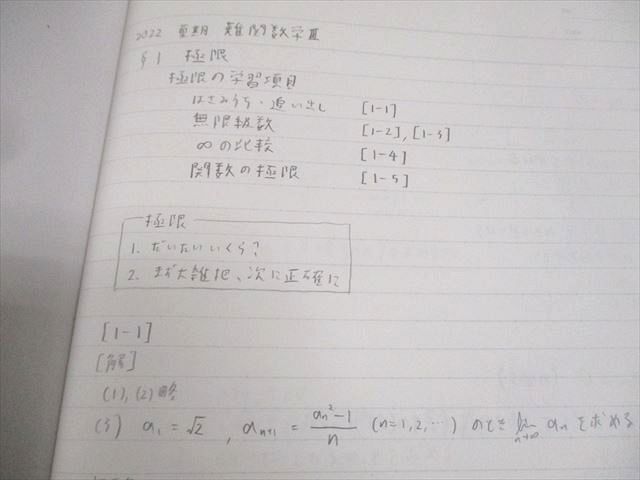 2022 夏期 難関数学Ⅲ
§1 極限
極限の学習項目
はさみうち・追い出し [1-1]
無限級数 [1-2],[1-3]
∞の比較 [1-4]
関数の極限 [1-5]
極限
1. だいたいいくら?
2. まず大雑把、次に正確に
[1-1]
[解]
(1),(2)略
(3) a₁ = √2 , aₙ₊₁ = (aₙ²-1)/n (n=1,2,…) のとき lim n→∞ aₙ を求める